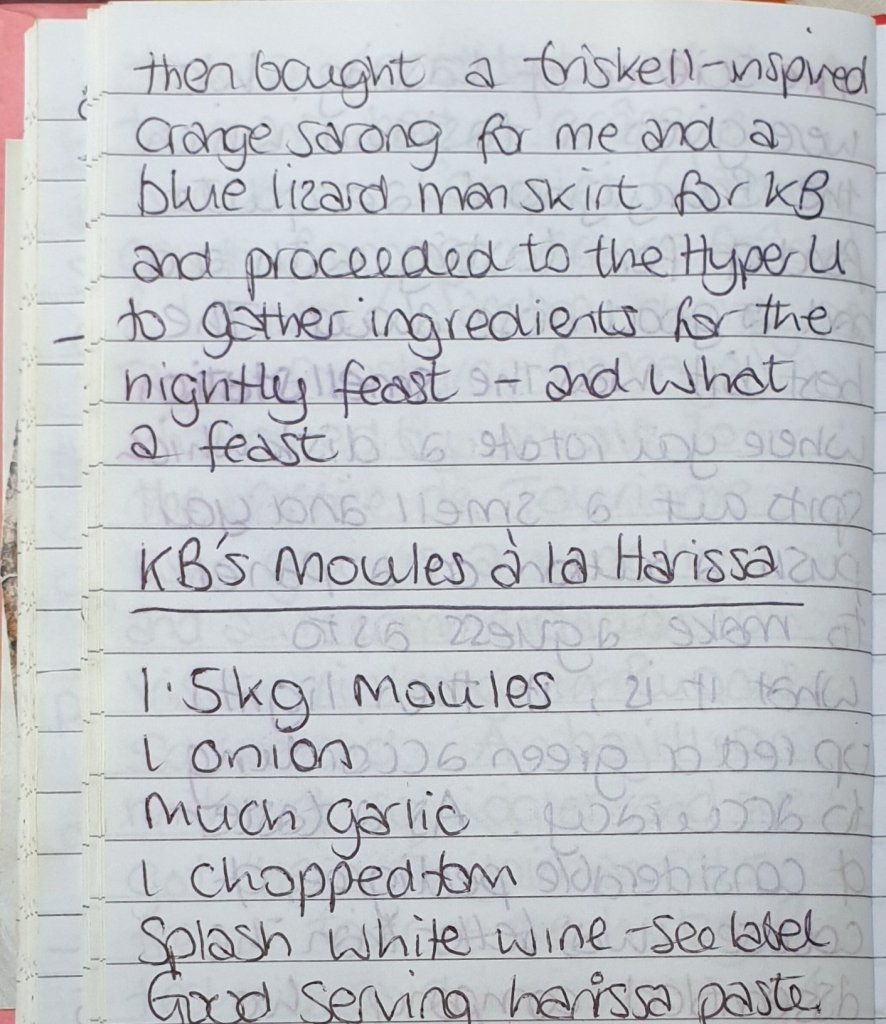 then bought a triskell-inspired
orange sarong for me and a
blue lizard man skirt for KB
and proceeded to the Hyper U
to gather ingredients for the
nightly feast - and what
a feast.
KB's Moules à la Harissa
1.5kg Moules
1 onion
Much garlic
1 chopped tom
Splash white wine - see label
Good serving harissa paste.